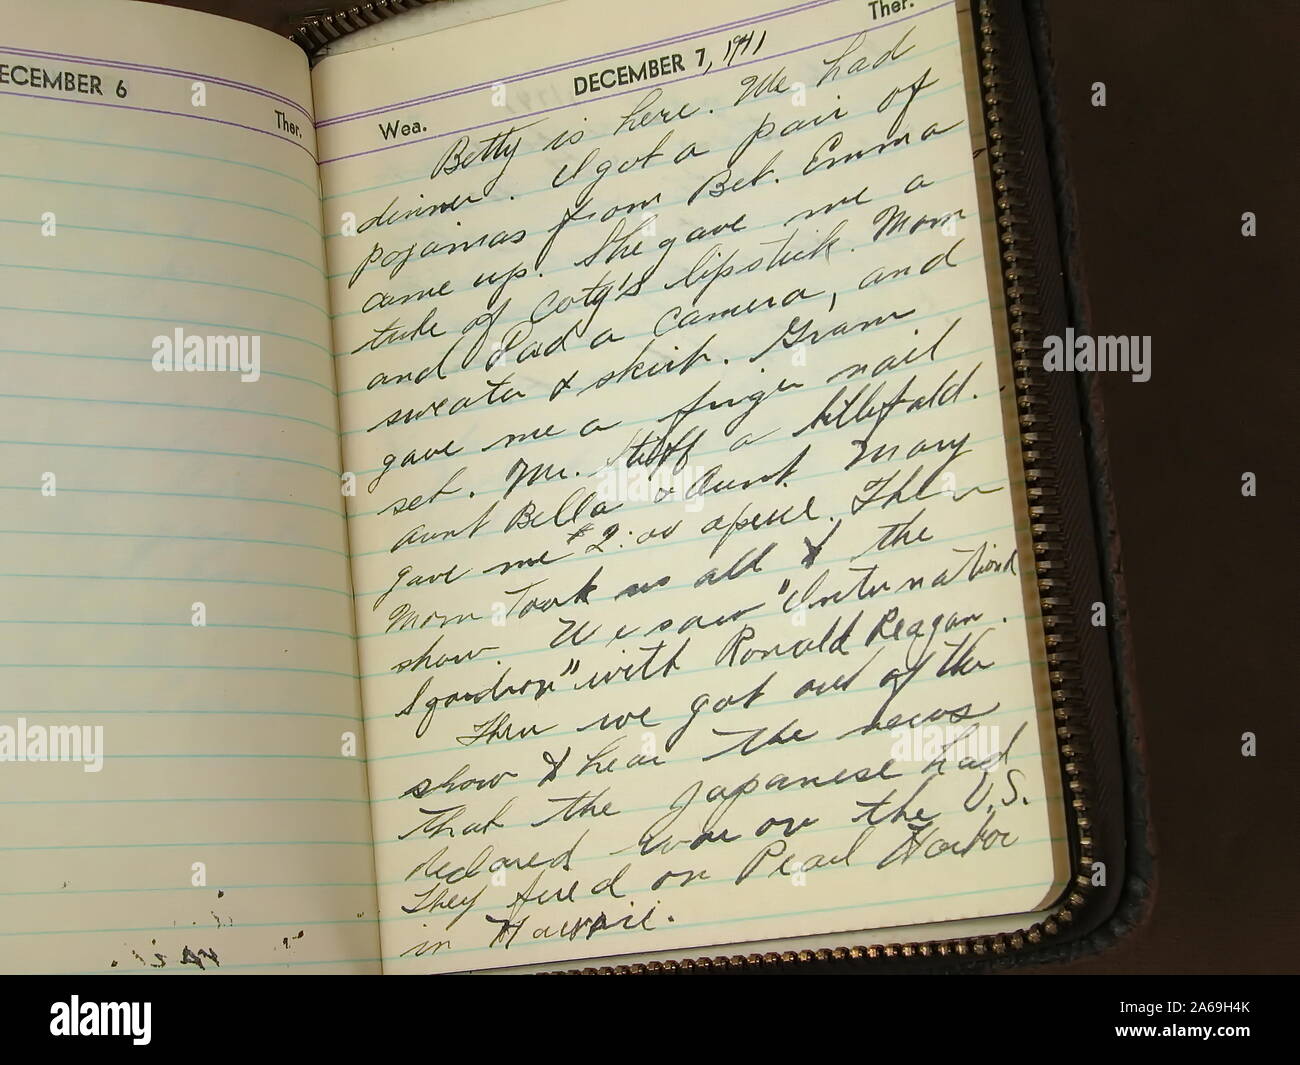 DECEMBER 6
Ther.
Ther.
DECEMBER 7, 1941
Wea.
Betty is here. We had
dinner. I got a pair of
pajamas from Bet. Emma
came up. She gave me a
tube of Coty's lipstick. Mom
and Dad a camera, and
sweater & skirt. Gram
gave me a finger nail
set. Mr. Stuff a billfold.
Aunt Bella & Aunt Mary
gave me $2.00 apiece. Then
Mom took us all to the
show. We saw "International
Squadron" with Ronald Reagan.
Then we got out of the
show & hear the news
that the Japanese had
declared war on the U.S.
They fired on Pearl Harbor
in Hawaii.
alamy
alamy
alamy
a
a
a
a
a
a
a
a
a
alamy
Image ID: 2A69H4K
www.alamy.com